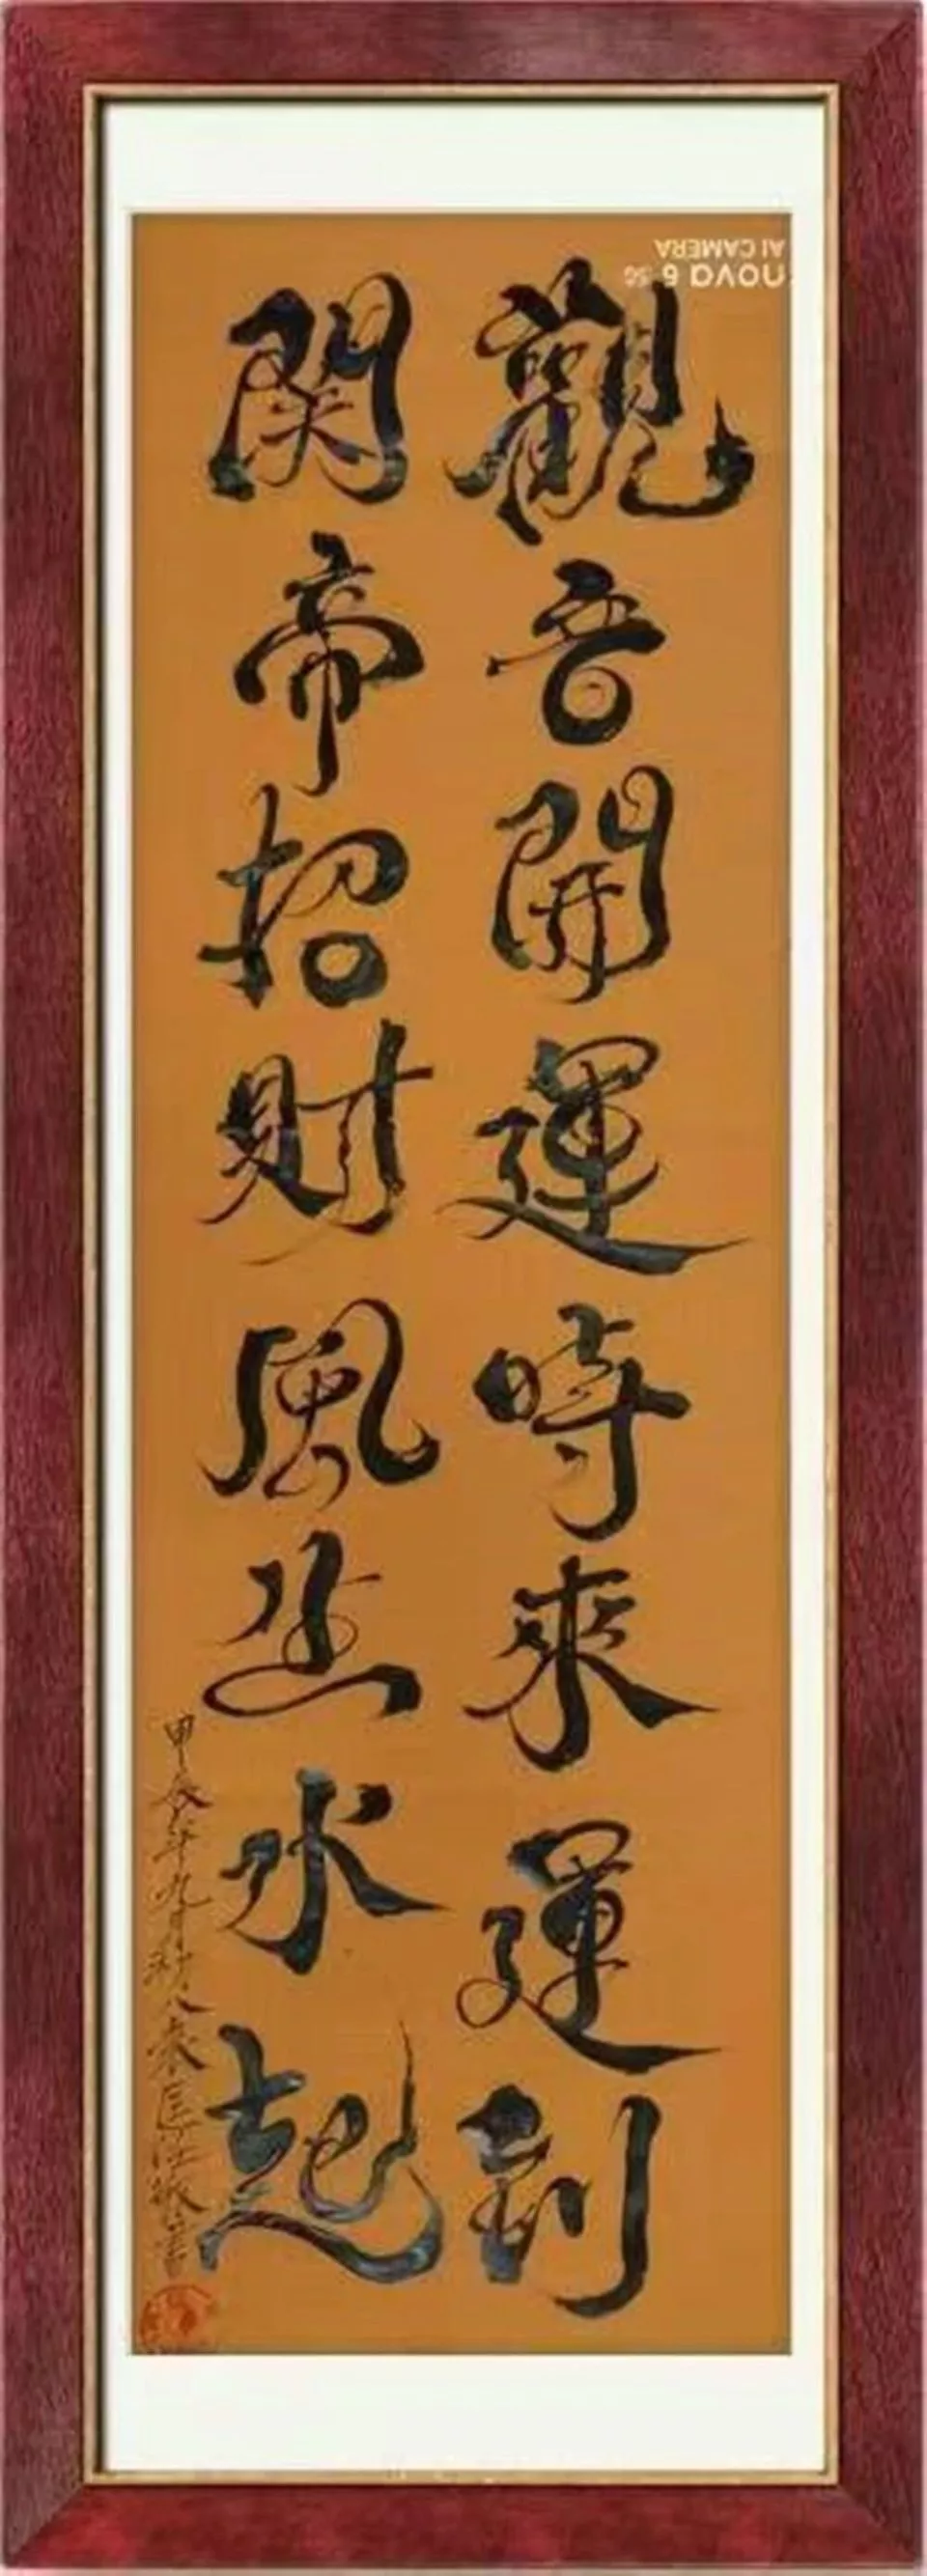 觀音開運時來運到
関帝招財風生水起
甲辰年九月
nova 6 5G
AI CAMERA